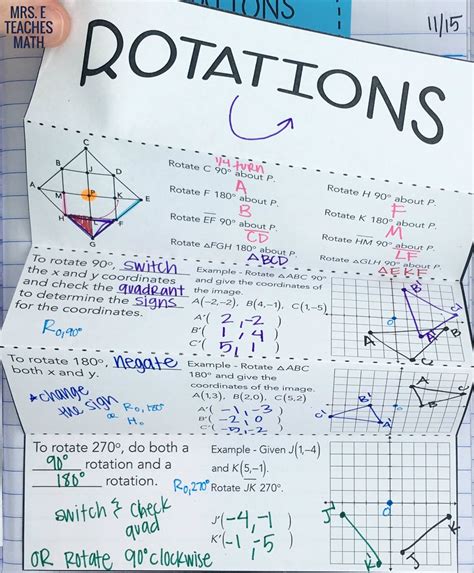 MRS. E
TEACHES
MATH
TIONS
11/15
ROTATIONS
1/4 turn
Rotate C 90° about P.
A
Rotate F 180° about P.
B
Rotate EF 90° about P.
CD
Rotate △FGH 180° about P.
△BCD
Rotate H 90° about P.
F
Rotate K 180° about P.
M
Rotate HM 90° about P.
LF
Rotate △GLH 90° about P.
△EKF
C
B
J
D
A
M
P
K
E
H
L
F
G
To rotate 90°, switch
the x and y coordinates
and check the quadrant
to determine the signs
for the coordinates.
R0,90°
Example - Rotate △ABC 90°
and give the coordinates of
the image.
A(-2,-2), B(4,-1), C(1,-5)
A'( 2, -2 )
B'( 1, 4 )
C'( 5, 1 )
B'
C'
A'
A
B
C
To rotate 180°, negate
both x and y.
*change
the sign
or R0,180°
H0
Example - Rotate △ABC
180° and give the
coordinates of the image.
A(1,3), B(2,0), C(5,2)
A'( -1, -3 )
B'( -2, 0 )
C'( -5, -2 )
A
C
B
B'
C'
A'
To rotate 270°, do both a
90° rotation and a
180° rotation.
R0,270°
switch & check
quad
OR Rotate 90° clockwise
Example - Given J(1,-4)
and K(5,-1).
Rotate JK 270°.
J'( -4, -1 )
K'( -1, -5 )
O
J'
K'
J
K